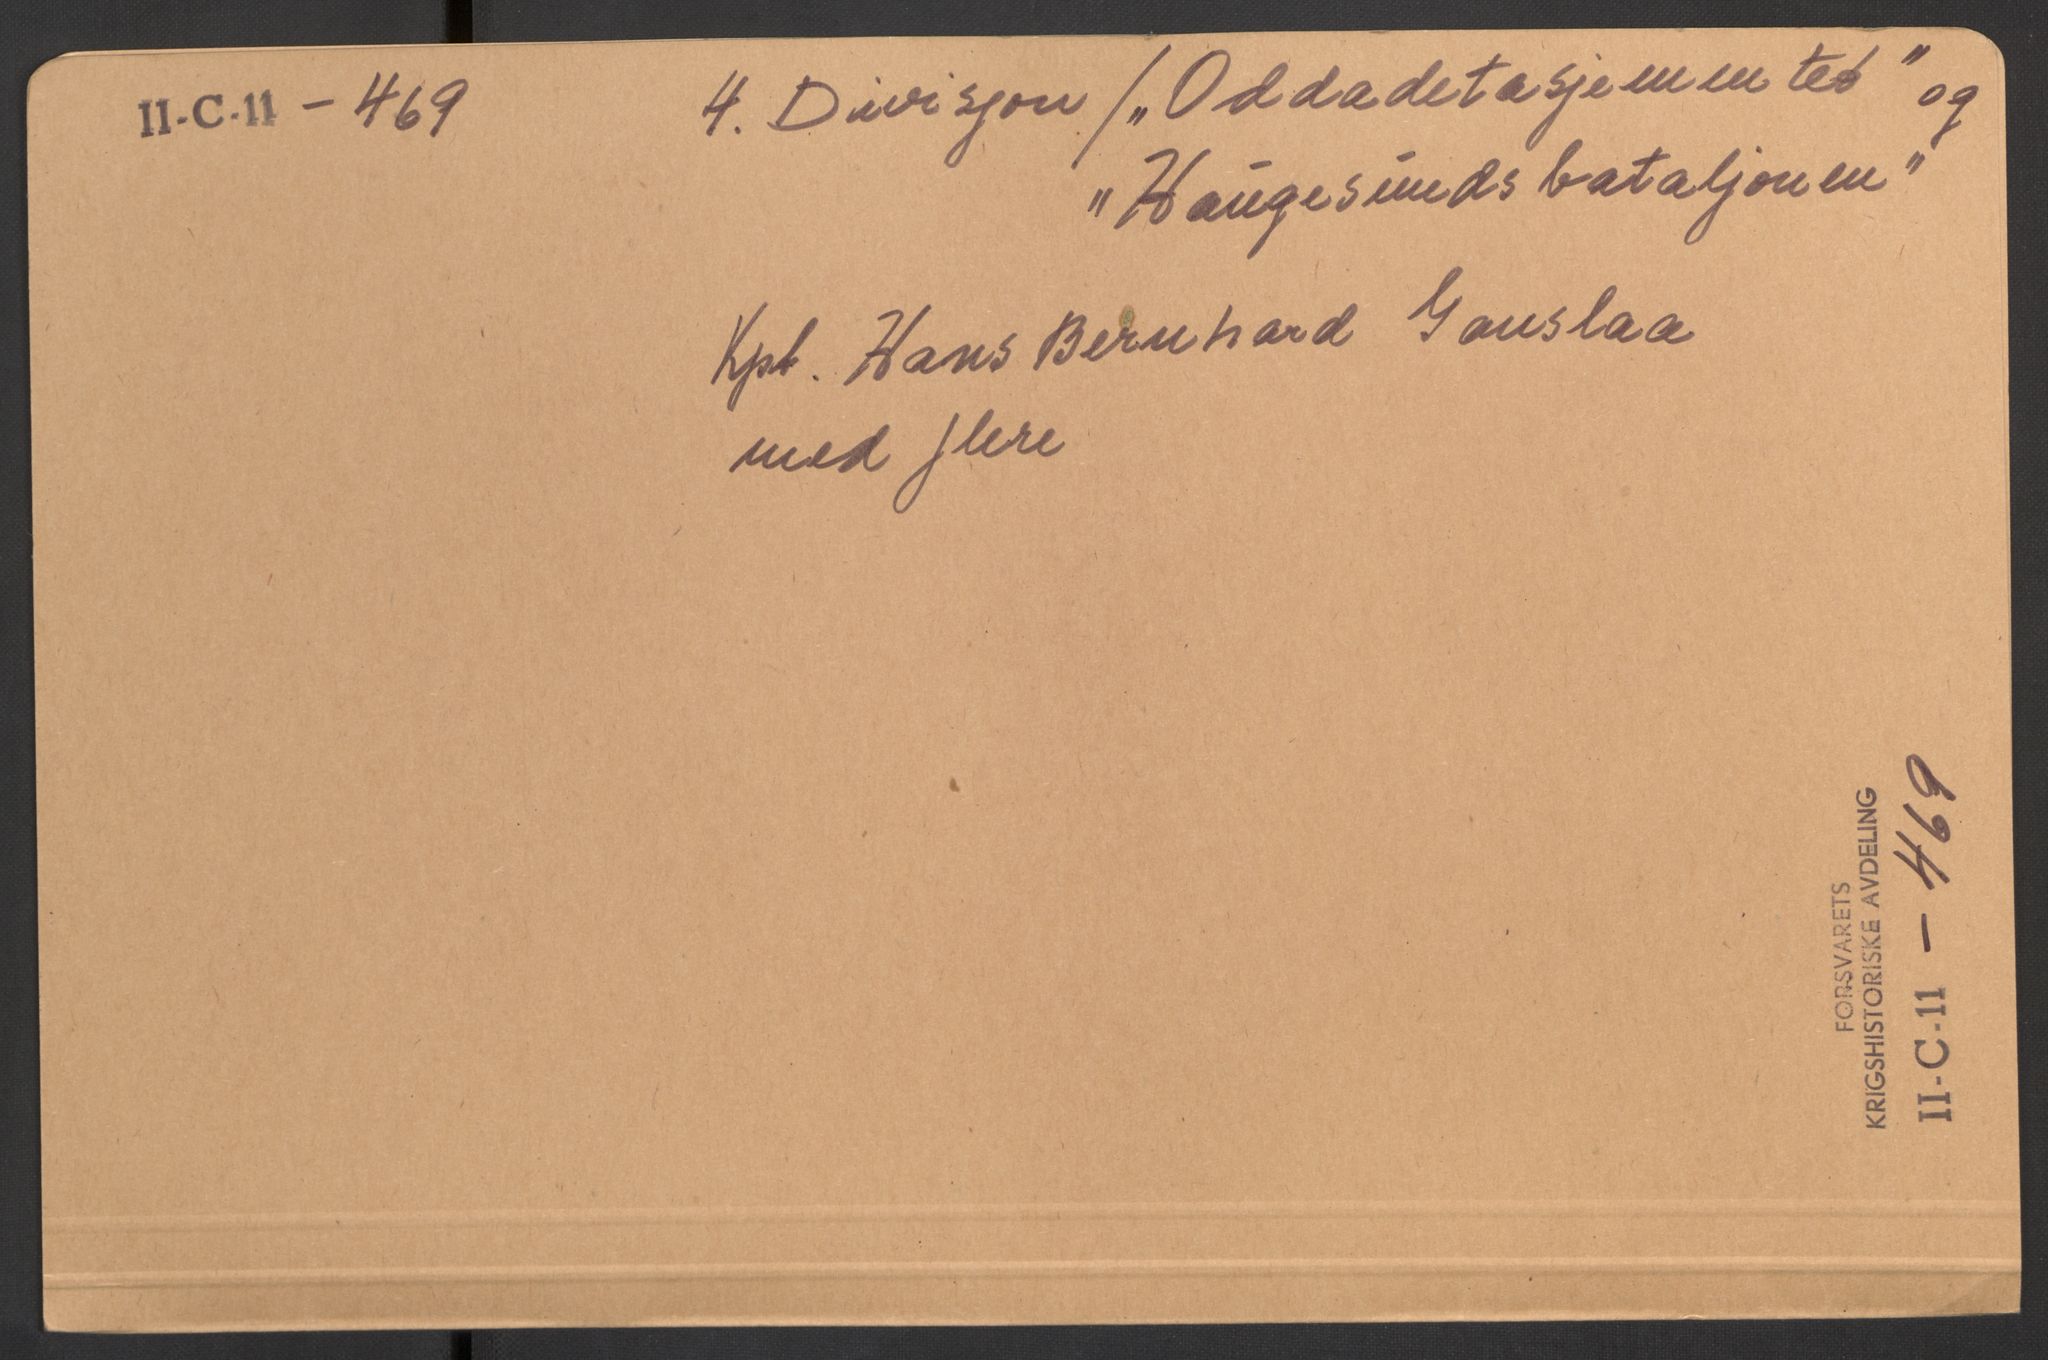 II-C-11 - 469
4. Divisjon / „Oddadetasjementet" og
„Haugesundsbataljonen"
Kpt. Hans Bernhard Gauslaa
med flere
FORSVARETS
KRIGSHISTORISKE AVDELING
II-C-11 - 469